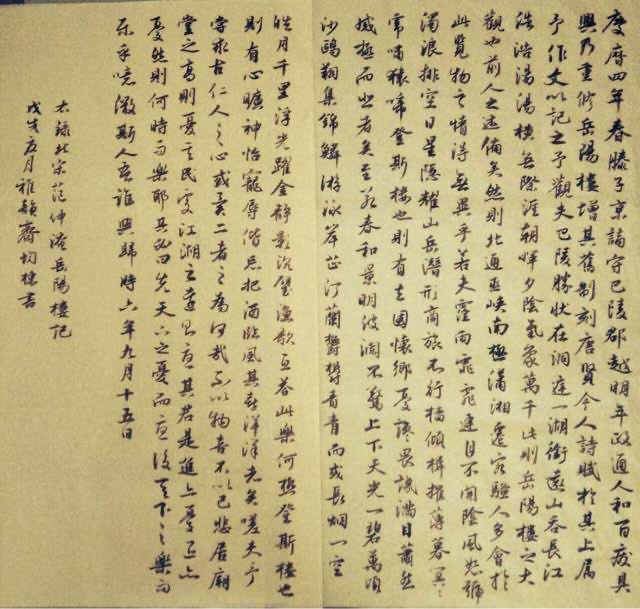 慶曆四年春滕子京謫守巴陵郡越明年政通人和百廢具
興乃重修岳陽樓增其舊制刻唐賢今人詩賦於其上屬
予作文以記之予觀夫巴陵勝狀在洞庭一湖銜遠山吞長江
浩浩湯湯橫無際涯朝暉夕陰氣象萬千此則岳陽樓之大
觀也前人之述備矣然則北通巫峽南極瀟湘遷客騷人多會於
此覽物之情得無異乎若夫霪雨霏霏連月不開陰風怒號
濁浪排空日星隱耀山岳潛形商旅不行檣傾楫摧薄暮冥冥
虎嘯猿啼登斯樓也則有去國懷鄉憂讒畏譏滿目蕭然
感極而悲者矣至若春和景明波瀾不驚上下天光一碧萬頃
沙鷗翔集錦鱗游泳岸芷汀蘭鬱鬱青青而或長烟一空
皓月千里浮光躍金靜影沉璧漁歌互答此樂何極登斯樓也
則有心曠神怡寵辱偕忘把酒臨風其喜洋洋者矣嗟夫予
嘗求古仁人之心或異二者之為何哉不以物喜不以己悲居廟
堂之高則憂其民處江湖之遠則憂其君是進亦憂退亦
憂然則何時而樂耶其必曰先天下之憂而憂後天下之樂而
樂乎噫微斯人吾誰與歸時六年九月十五日
右錄北宋范仲淹岳陽樓記
戊戌夏月雅韻齋均棟書